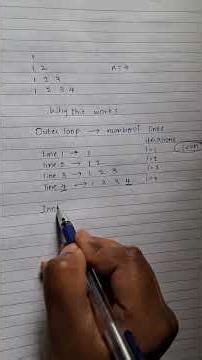 1
1 2 n = 4
1 2 3
1 2 3 4
Why this works
Outer loop → number of lines
iterations
line 1 → 1 i=1
line 2 → 1 2 i=2
line 3 → 1 2 3 i=3
line 4 → 1 2 3 4 i=4
Inn